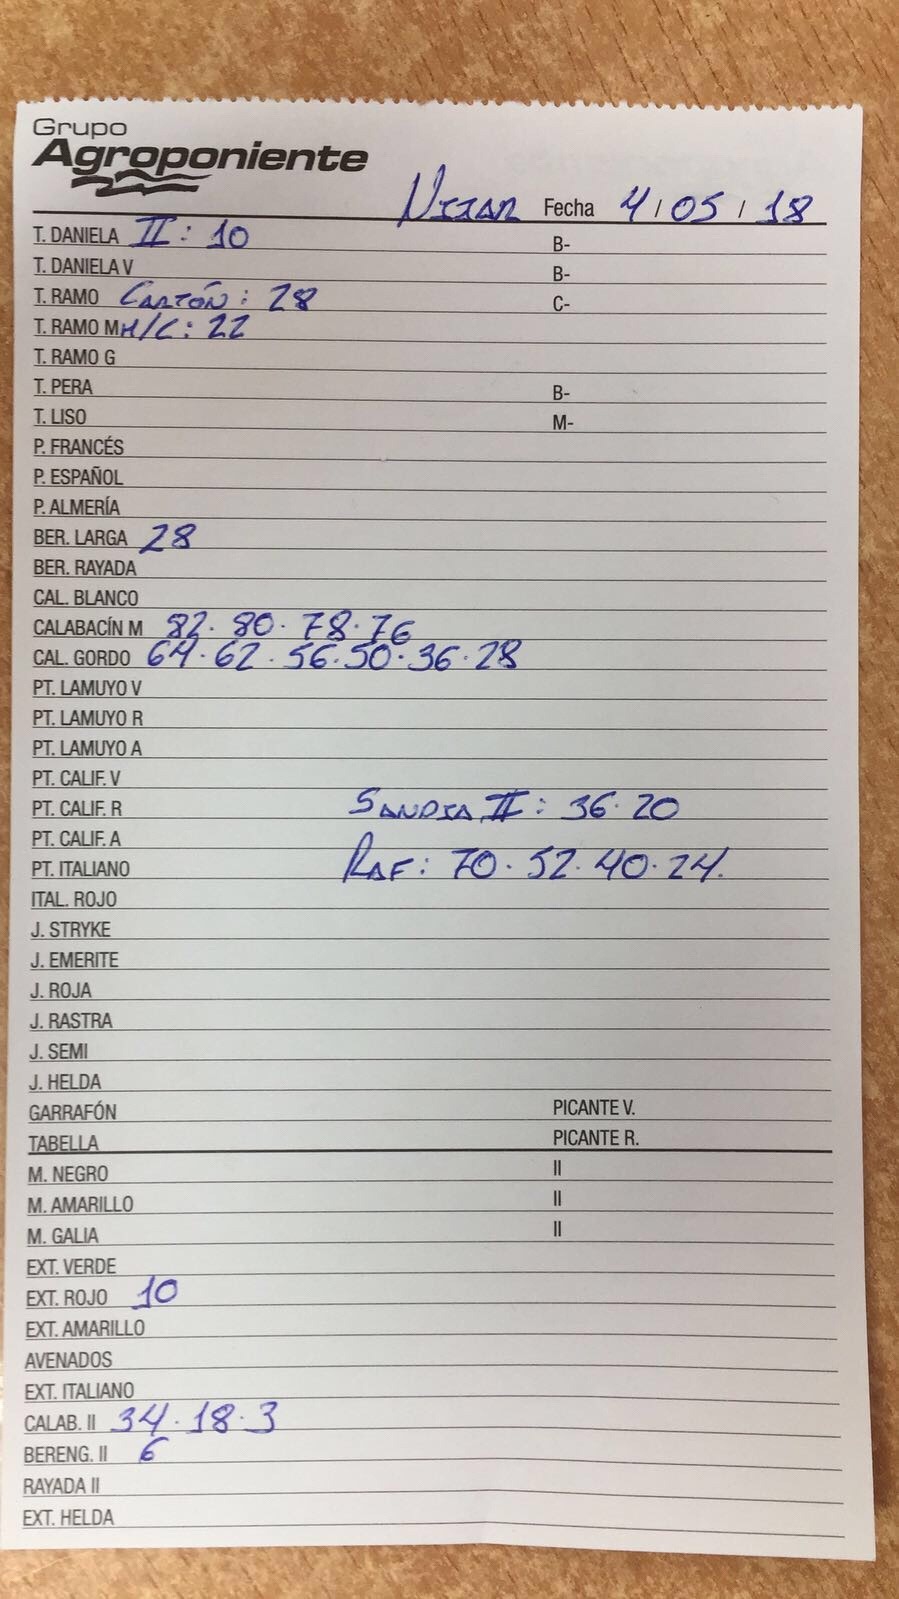 Grupo
Agroponiente
Nijar Fecha 4 / 05 / 18
T. DANIELA II: 10 B-
T. DANIELA V B-
T. RAMO Cartón: 28 C-
T. RAMO M H/C: 22
T. RAMO G
T. PERA B-
T. LISO M-
P. FRANCÉS
P. ESPAÑOL
P. ALMERÍA
BER. LARGA 28
BER. RAYADA
CAL. BLANCO
CALABACÍN M 82. 80. 78. 76
CAL. GORDO 64. 62. 56. 50. 36. 28
PT. LAMUYO V
PT. LAMUYO R
PT. LAMUYO A
PT. CALIF. V
PT. CALIF. R Sandia II: 36. 20
PT. CALIF. A
PT. ITALIANO Raf: 70. 52. 40. 24.
ITAL. ROJO
J. STRYKE
J. EMERITE
J. ROJA
J. RASTRA
J. SEMI
J. HELDA
GARRAFÓN PICANTE V.
TABELLA PICANTE R.
M. NEGRO II
M. AMARILLO II
M. GALIA II
EXT. VERDE
EXT. ROJO 10
EXT. AMARILLO
AVENADOS
EXT. ITALIANO
CALAB. II 34. 18. 3
BERENG. II 6
RAYADA II
EXT. HELDA